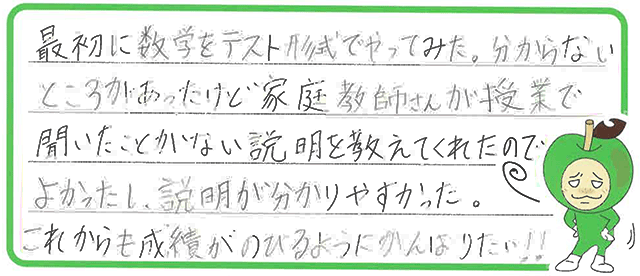 最初に数学をテスト形式でやってみた。分からない
ところがあったけど家庭教師さんが授業で
聞いたことがない説明を教えてくれたので
よかったし、説明が分かりやすかった。
これからも成績がのびるようにがんばりたい!!